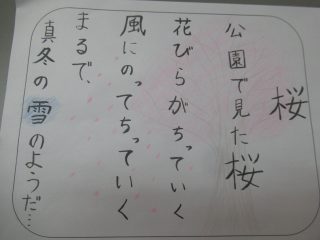 桜
公園で見た桜
花びらがちっていく
風にのってちっていく
まるで、
真冬の雪のようだ…